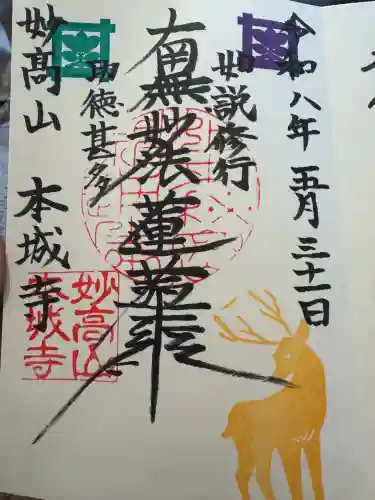 令和八年五月三十一日
如説修行
南無妙法蓮華経
功徳甚多
妙高山 本城寺
妙高山
本城寺